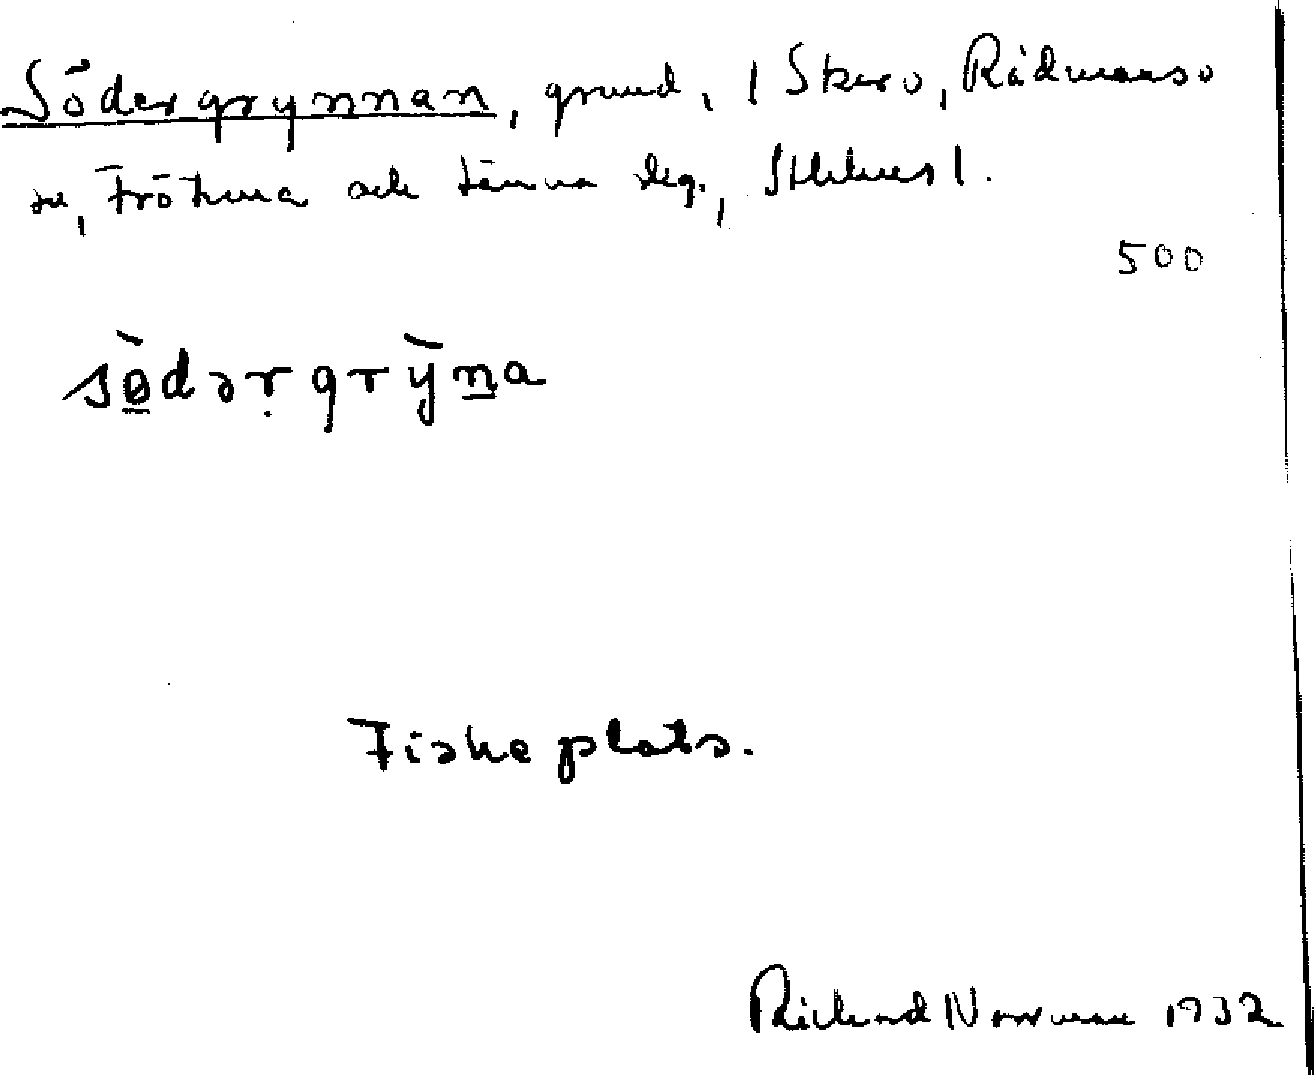 Södergrynnan, grund, i Skero, Rådmansö
sn, Frötuna och Länna skg., Sthlms l.
500
sө̀dərgrỳna
Fiskeplats.
Richard Norrman 1932